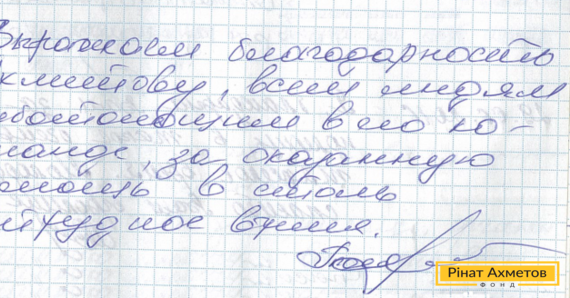 Выражаем благодарность
хметову, всем людям
аботающим в его ко-
манде, за оказанную
мощь в столь
трудное время.
Рінат Ахметов
ФОНД